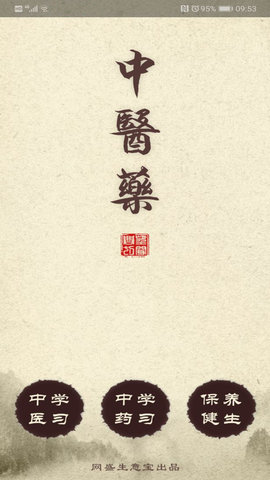 95% 09:53
中
醫
藥
中医 学习
中药 学习
保健 养生
网盛生意宝出品